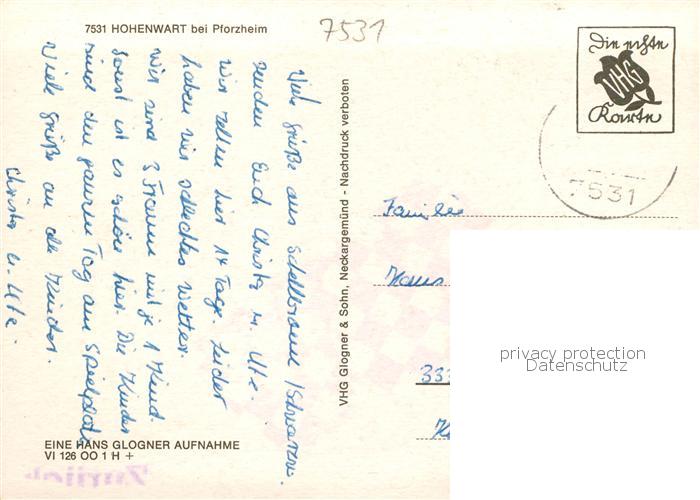 7531 HOHENWART bei Pforzheim
7531
Viele Grüße aus Schellbronn /Schwarzw.
senden Euch Christa u. Ute.
Wir zelten hier 14 Tage. Leider
haben wir schlechtes Wetter.
Wir sind 3 Frauen mit je 1 Kind.
Sonst ist es schön hier. Die Kinder
sind den ganzen Tag am Spielplatz
Viele Grüße an alle Kinder.
Christa u. Ute.
EINE HANS GLOGNER AUFNAHME
VI 126 OO 1 H +
VHG Glogner & Sohn, Neckargemünd - Nachdruck verboten
Die echte
VHG
Karte
7531
Familie
Hans
333
K
privacy protection
Datenschutz
Zurück